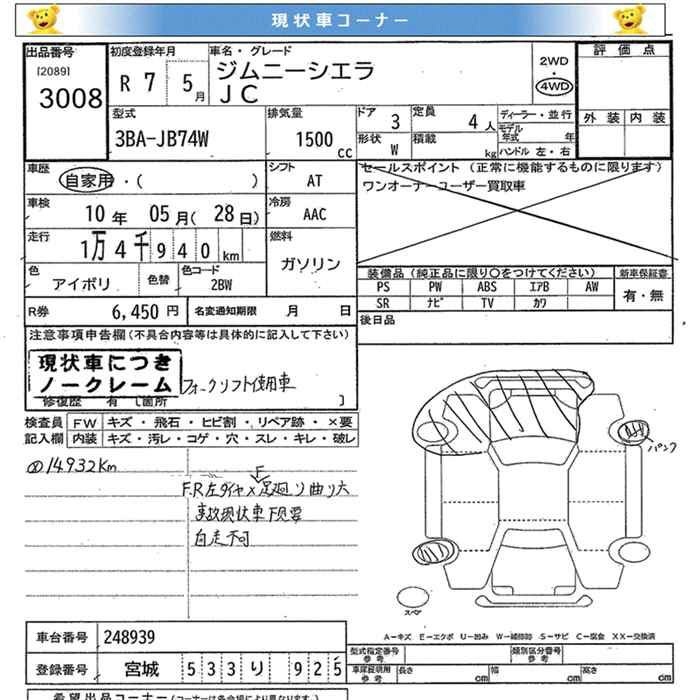 現状車コーナー
出品番号
[2089]
3008
初度登録年月
R 7 5月
車名・グレード
ジムニーシエラ
JC
2WD
・
4WD
評価点
外装 内装
型式
3BA-JB74W
排気量
1500 cc
ドア 3
定員 4人
形状 W
積載 kg
ディーラー・並行
モデル年式 年
ハンドル 左・右
車歴
自家用・( )
シフト
AT
セールスポイント (正常に機能するものに限ります)
ワンオーナーユーザー買取車
車検
10年 05月( 28日)
冷房
AAC
走行
1万4千940km
燃料
ガソリン
色
アイボリ
色替
色コード
2BW
装備品(純正品に限り○をつけてください)
新車保証書
PS PW ABS エアB AW
SR ナビ TV カワ
有・無
R券 6,450円
名変通知期限 月 日
後日品
注意事項申告欄(不具合内容等は具体的に記入して下さい)
現状車につき
ノークレーム
フォークリフト使用車
修復歴 有 [箇所 ]
検査員記入欄
FW キズ・飛石・ヒビ割・リペア跡・×要
内装 キズ・汚レ・コゲ・穴・スレ・キレ・破レ
14932Km
F
F.R左タイヤ×足廻り曲り大
事故現状車下見要
自走不可
パンク
スペア
A−キズ E−エクボ U−凹み W−補修跡 S−サビ C−腐食 XX−交換済
車台番号 248939
登録番号 宮城 533 り 925
型式指定番号 参考
類別区分番号 参考
車庫証明用 参考
長さ cm 幅 cm 高さ cm
希望出品コーナー